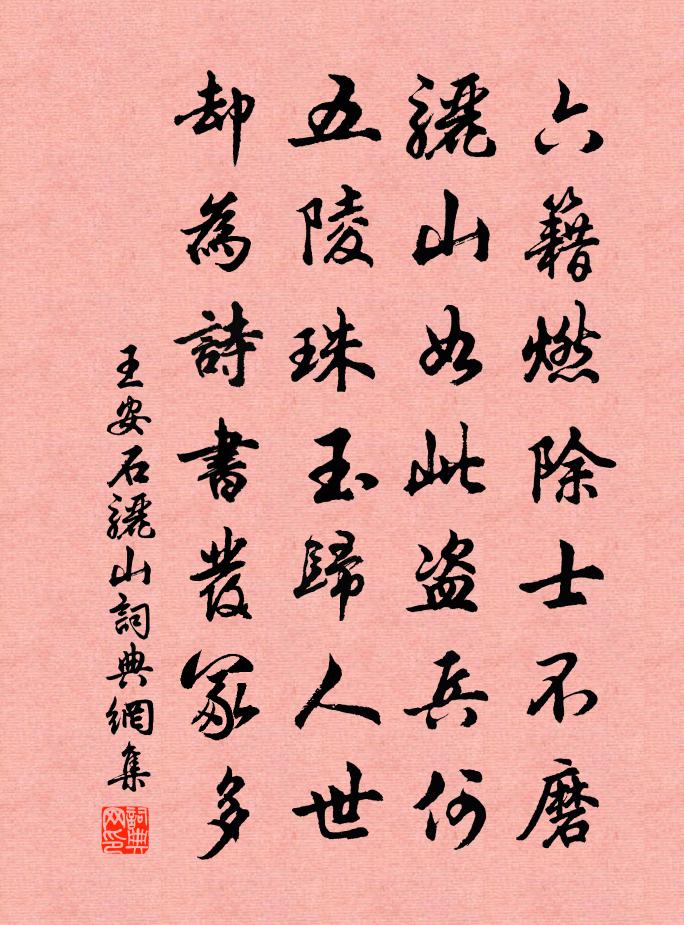 六籍燃除士不磨
驪山如此盗兵何
五陵珠玉歸人世
却為詩書發冢多
王安石驪山詞典網集
詞典网印